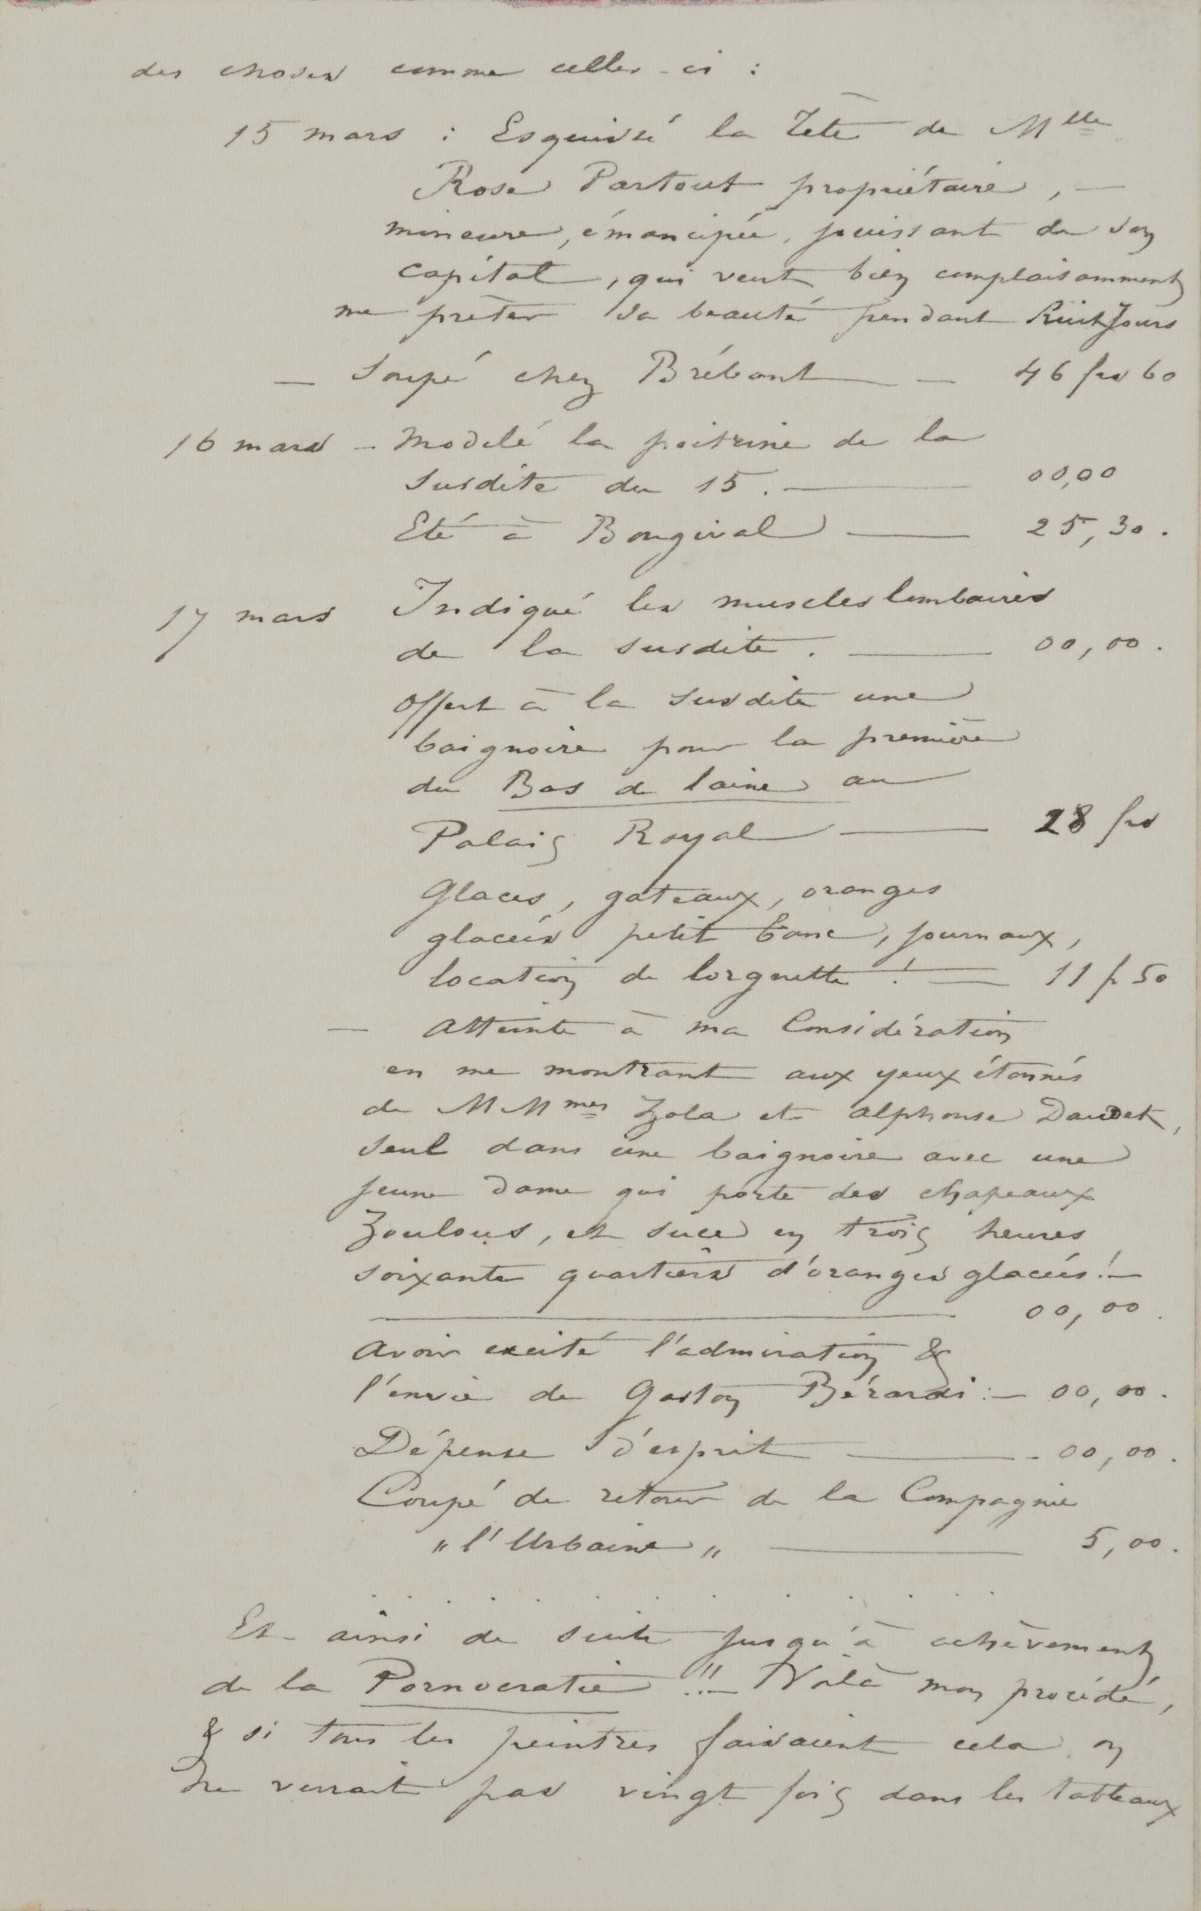 des choses comme celles-ci :
15 mars : Esquissé la Tête de Mlle
Rose Partout propriétaire, —
mineure, émancipée, jouissant de son
capital, qui veut bien complaisamment
me prêter sa beauté pendant huit Jours
— Soupé chez Brébant — — 46 frs 60
16 mars — Modelé la poitrine de la
susdite du 15. — 00,00
Eté à Bougival — 25,30.
17 mars Indiqué les muscles lombaires
de la susdite. — 00,00.
Offert à la susdite une
baignoire pour la première
du Bas de laine au
Palais Royal — 28 frs
Glaces, gateaux, oranges
glacées petit banc, journaux,
location de lorgnette ! — 11 f 50
— Atteinte à ma Considération
en me montrant aux yeux étonnés
de MMmes Zola et Alphonse Daudet,
seul dans une baignoire avec une
jeune Dame qui porte des chapeaux
Zoulous, et suce en trois heures
soixante quartiers d'oranges glacées! —
— 00,00.
Avoir excité l'admiration &
l'envie de Gaston Bérardi : — 00,00.
Dépense d'esprit — 00,00.
Coupé de retour de la Compagnie
"l'Urbaine" — 5,00.
. . . . . . . . .
Et ainsi de suite jusqu'à achèvement
de la Pornocratie !!! — Voilà mon procédé,
& si tous les peintres faisaient cela on
ne verrait pas vingt fois dans les tableaux